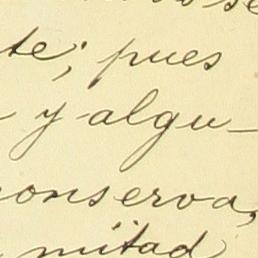 te; pues
y algu-
conserva,
mitad